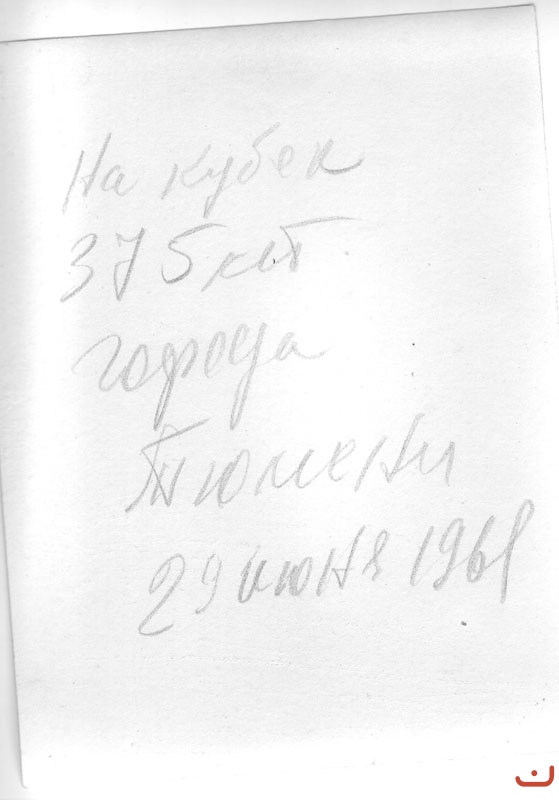 На кубок
375 лет
города
Тюмени
29 июня 1961